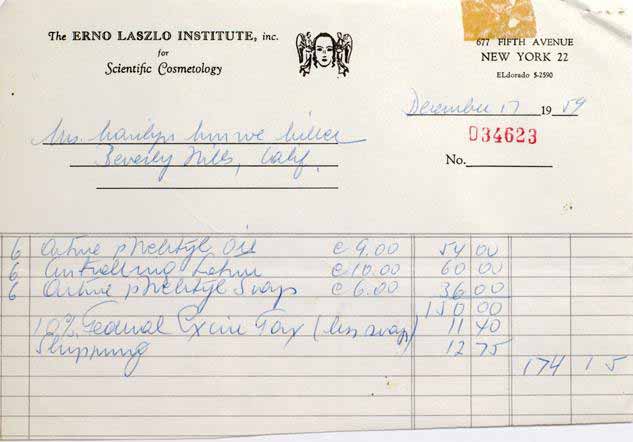 The ERNO LASZLO INSTITUTE, inc.
for
Scientific Cosmetology
677 FIFTH AVENUE
NEW YORK 22
ELdorado 5-2590
December 17 1959
034623
No.
Mrs. Marilyn Monroe Miller
Beverly Hills, Calif.
6 Active pHelityl Oil @ 9.00 54 00
6 Controlling Lotion @ 10.00 60 00
6 Active pHelityl Soap @ 6.00 36 00
150 00
10% Federal Excise Tax (less soap) 11 40
Shipping 12 75
174 15